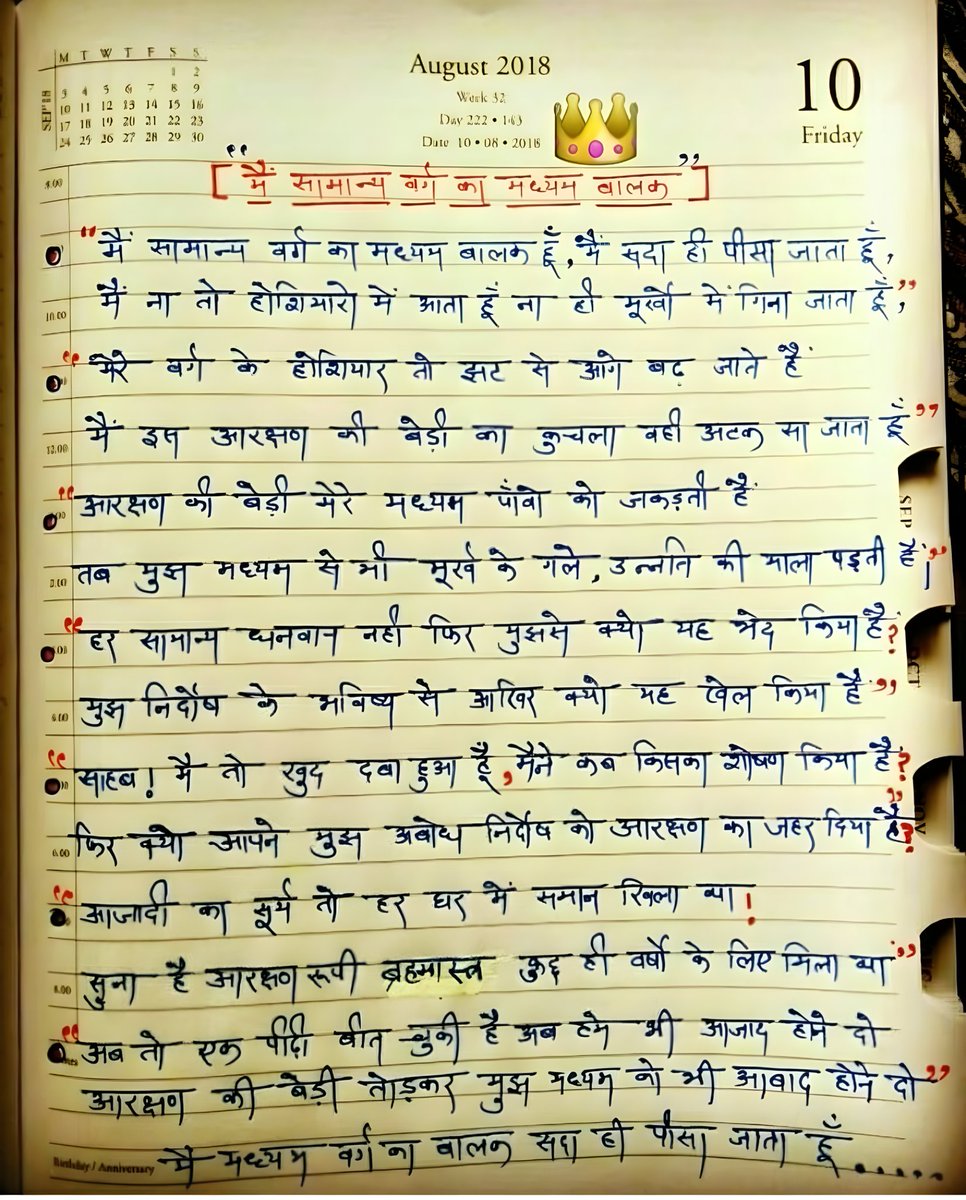 M T W T F S S
1 2
3 4 5 6 7 8 9
10 11 12 13 14 15 16
17 18 19 20 21 22 23
24 25 26 27 28 29 30
SEP'18
August 2018
Week 32
Day 222 • 143
Date 10 • 08 • 2018
10
Friday
[“मैं सामान्य वर्ग का मध्यम बालक”]
“मैं सामान्य वर्ग का मध्यम बालक हूँ, मैं सदा ही पीसा जाता हूँ,
मैं ना तो होशियारो में आता हूँ ना ही मूर्खो में गिना जाता हूँ,”
“मेरे वर्ग के होशियार तो झट से आगे बढ़ जाते हैं
मैं इस आरक्षण की बेड़ी का कुचला वही अटक सा जाता हूँ”
“आरक्षण की बेड़ी मेरे मध्यम पाँवो को जकड़ती हैं
तब मुझ मध्यम से भी मूर्ख के गले, उन्नति की माला पड़ती हैं।”
“हर सामान्य धनवान नही फिर मुझसे क्यो यह भेद किया हैं?
मुझ निर्दोष के भविष्य से आखिर क्यो यह खेल किया हैं”
“साहब! मै तो खुद दबा हुआ हूँ, मैने कब किसका शोषण किया हैं?
फिर क्यो आपने मुझ अबोध निर्दोष को आरक्षण का जहर दिया हैं?”
“आजादी का सूर्य तो हर घर में समान खिला था!
सुना है आरक्षण रूपी ब्रहमास्त्र कुछ ही वर्षो के लिए मिला था”
“अब तो एक पीढी बीत चुकी है अब हमे भी आजाद होने दो
आरक्षण की बेड़ी तोड़कर मुझ मध्यम को भी आबाद होने दो”
मै मध्यम वर्ग का बालक सदा ही पीसा जाता हूँ.....
Birthday / Anniversary
SEP